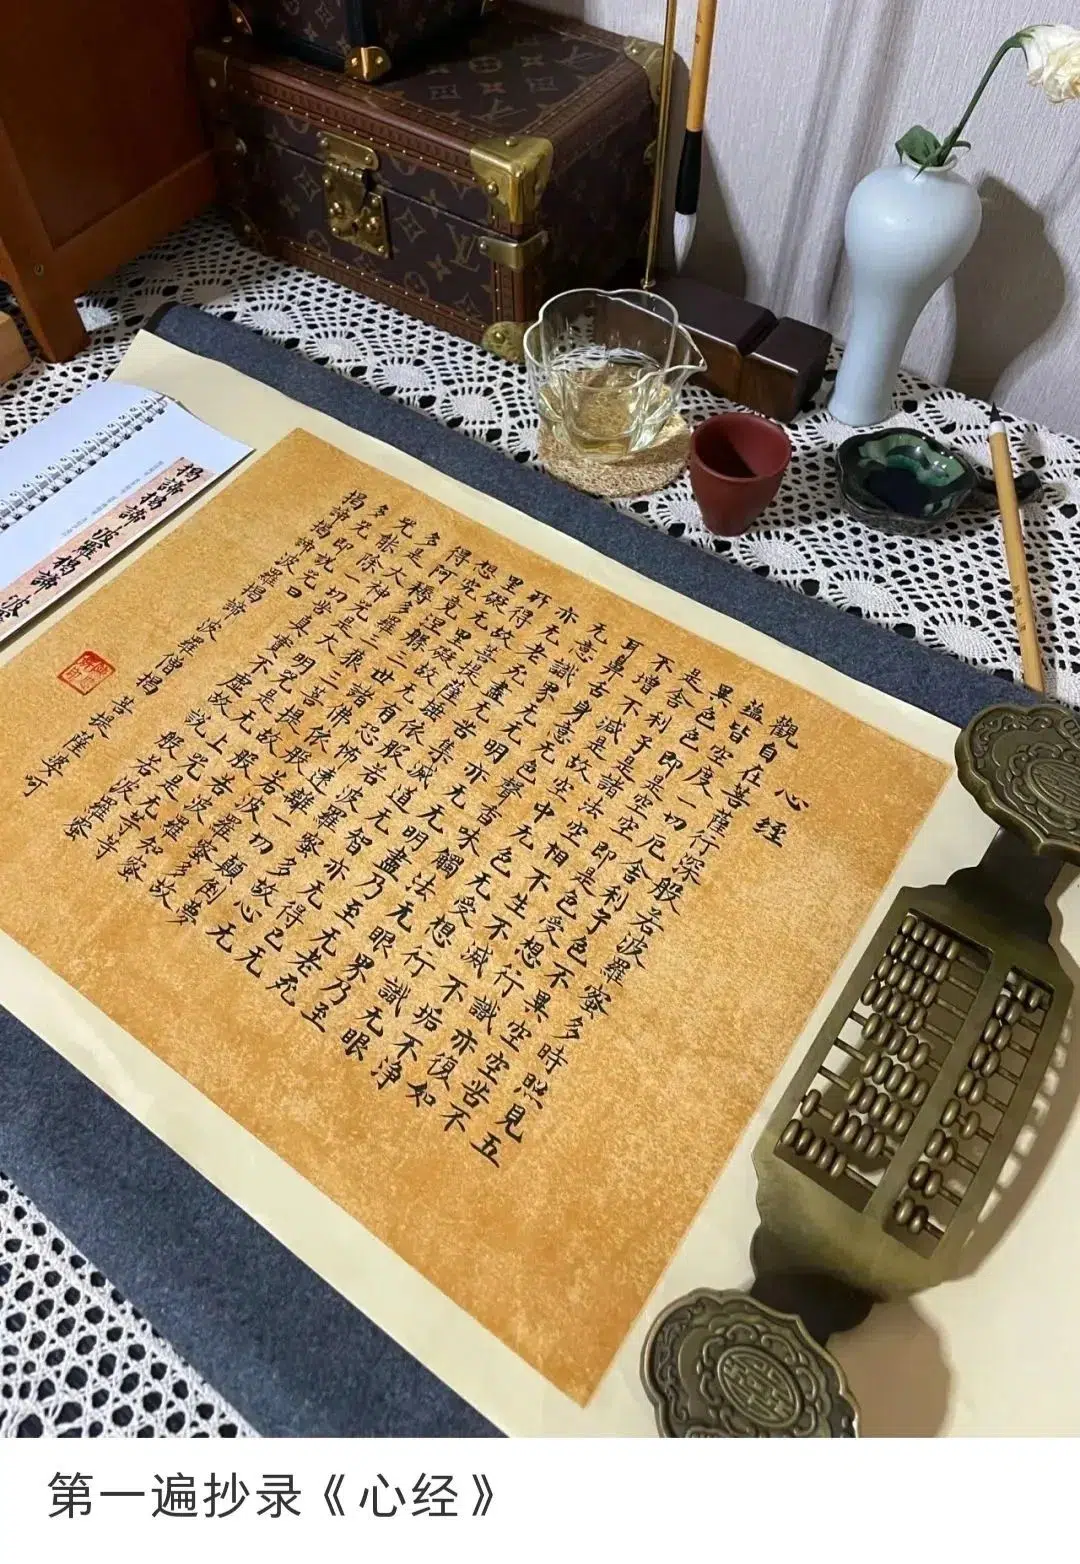 心經
觀自在菩薩行深般若波羅蜜多時照見五
蘊皆空度一切厄舍利子色不異空空不
異色色即是空空即是色受想行識亦復如
是舍利子是諸法空相不生不滅不垢不净
不增不減是故空中无色无受想行識无眼
耳鼻舌身意无色聲香味觸法无眼界乃至
无意識界无无明亦无无明盡乃至无老死
亦无老死盡无苦集滅道无智亦无得已无
所得故菩提薩埵依般若波羅蜜多故心无
里礙无里礙故无有恐怖遠離一切顛倒夢
想究竟涅槃三世諸佛依般若波羅蜜多故
得阿耨多羅三狼三菩提故知般若波羅蜜
多是大神咒是大明咒是无上咒是无等等
咒能除一切苦真實不虛故説般若波羅蜜
多咒即説咒曰
揭諦揭諦波羅揭諦波羅僧揭菩提薩婆呵
揭諦揭諦波羅揭諦波
第一遍抄录《心经》